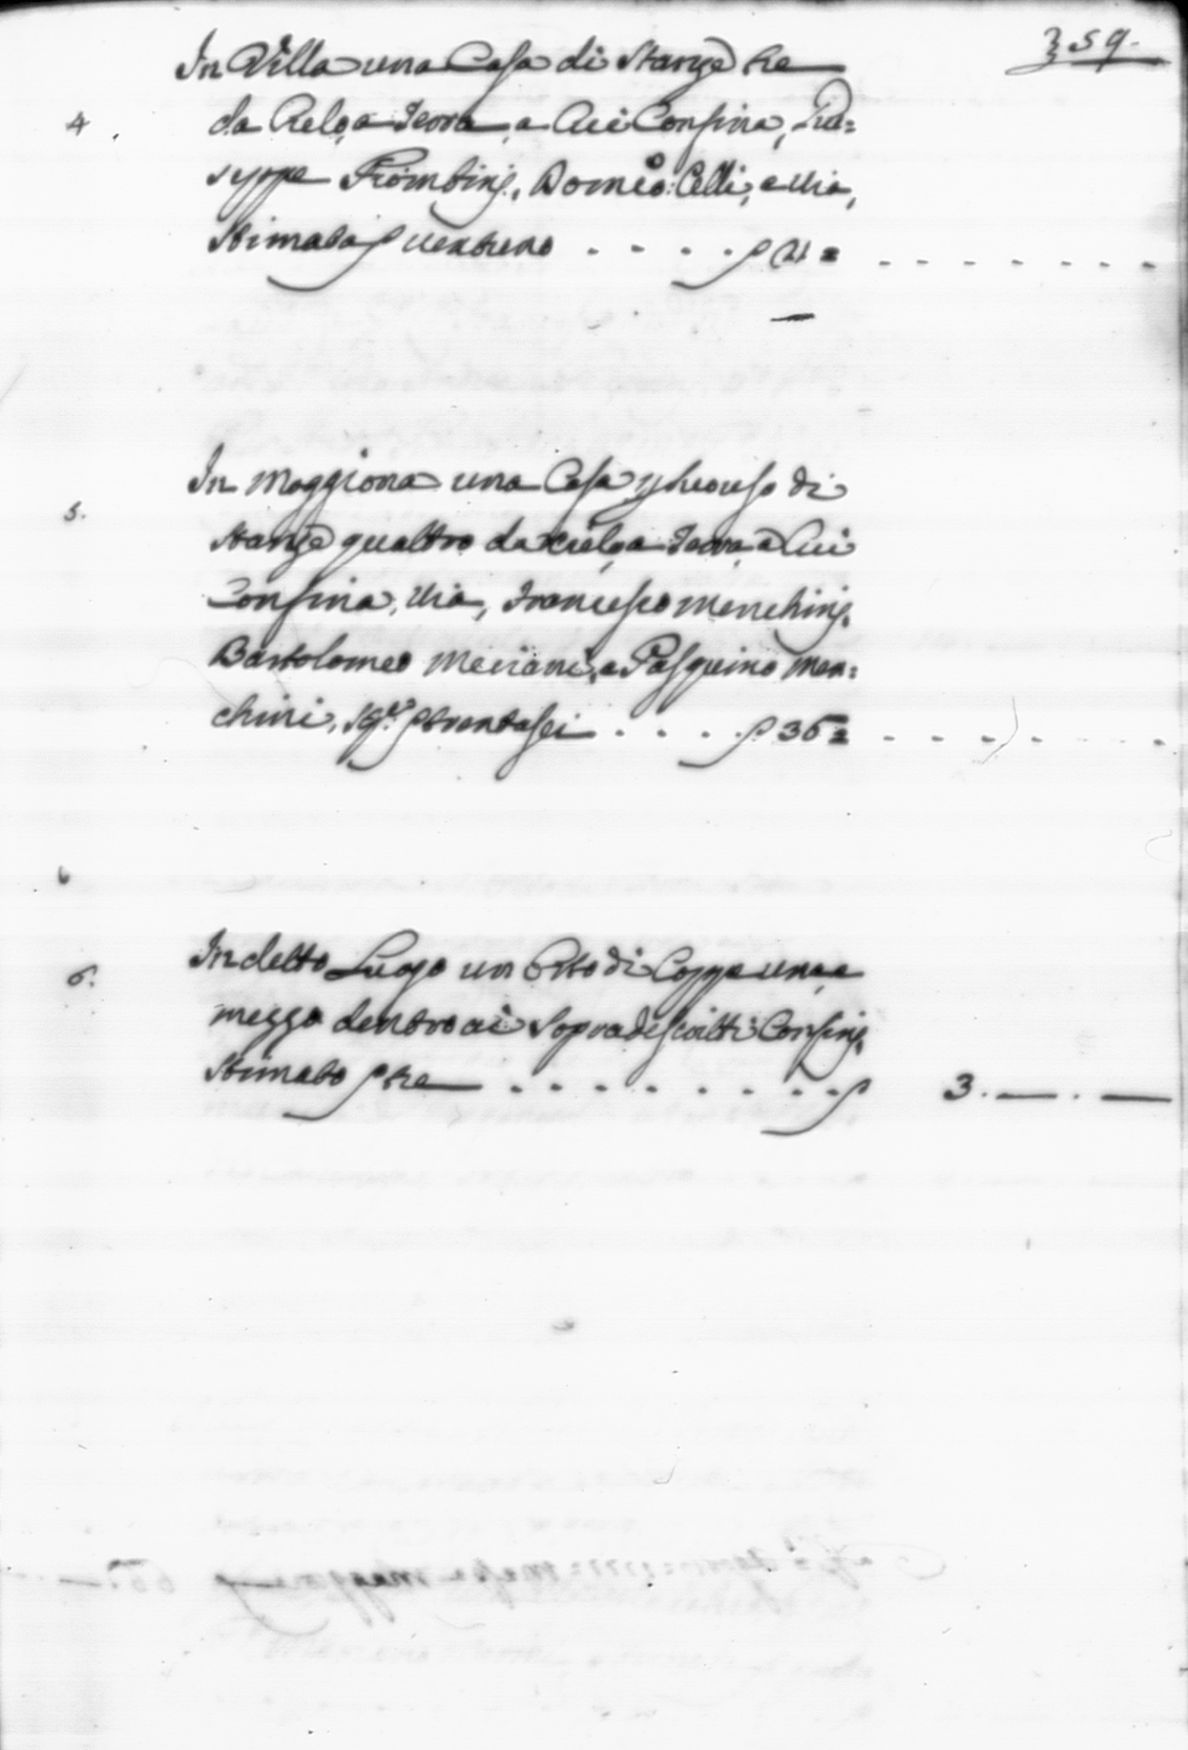 359.
In Villa una Casa di Stanze tre
4. da Cielo, a Terra a Cui Confina, Giu=
seppe Piombini, Domco: Celli, e Via,
Stimata s ventuno . . . . s 21 =
In Maggiona una Casa p suo uso di
5. Stanze quattro da Cielo, a Terra, a Cui
Confina, Via, Francesco Menchini,
Bartolomeo Meciani, e Pasquino Men=
chini, s trentasei . . . . s 36 =
In detto Luogo un Orto di Coppe una, e
6. mezza dentro ai Sopradescritti Confini,
Stimato s tre . . . . . . . . s 3. — . —